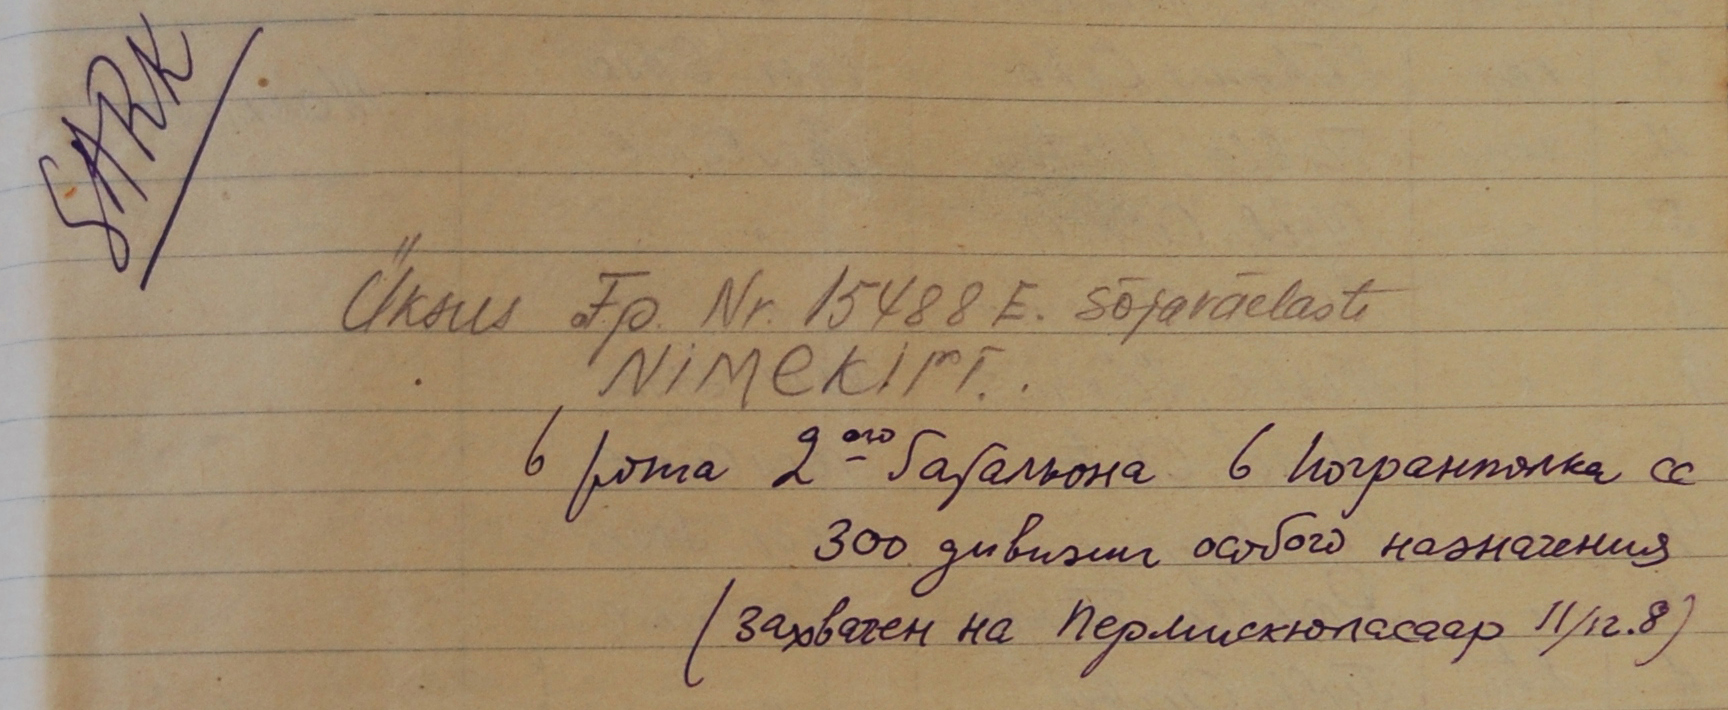 SARK
Üksus Fp. Nr. 15488 E. Sõjaväelaste
NiMeKiri.
6 рота 2ого батальона 6 погранполка СС
300 дивизии особого назначения
(Захвачен на Пермискюласаар